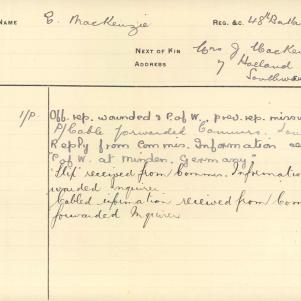 NAME E. MacKenzie REG. &C. 48th Batt
NEXT OF KIN Mrs J MacKen
ADDRESS 7 Holland
Southw
1/P. Off. rep. wounded & P. of W., prev. rep. miss
P/Cable forwarded Commrs.
Reply from Commrs. Information
P. of W. at Minden. Germany"
"Slip" received from Commrs. Informatio
warded inquirer
Cabled information received from Com
forwarded Inquirer